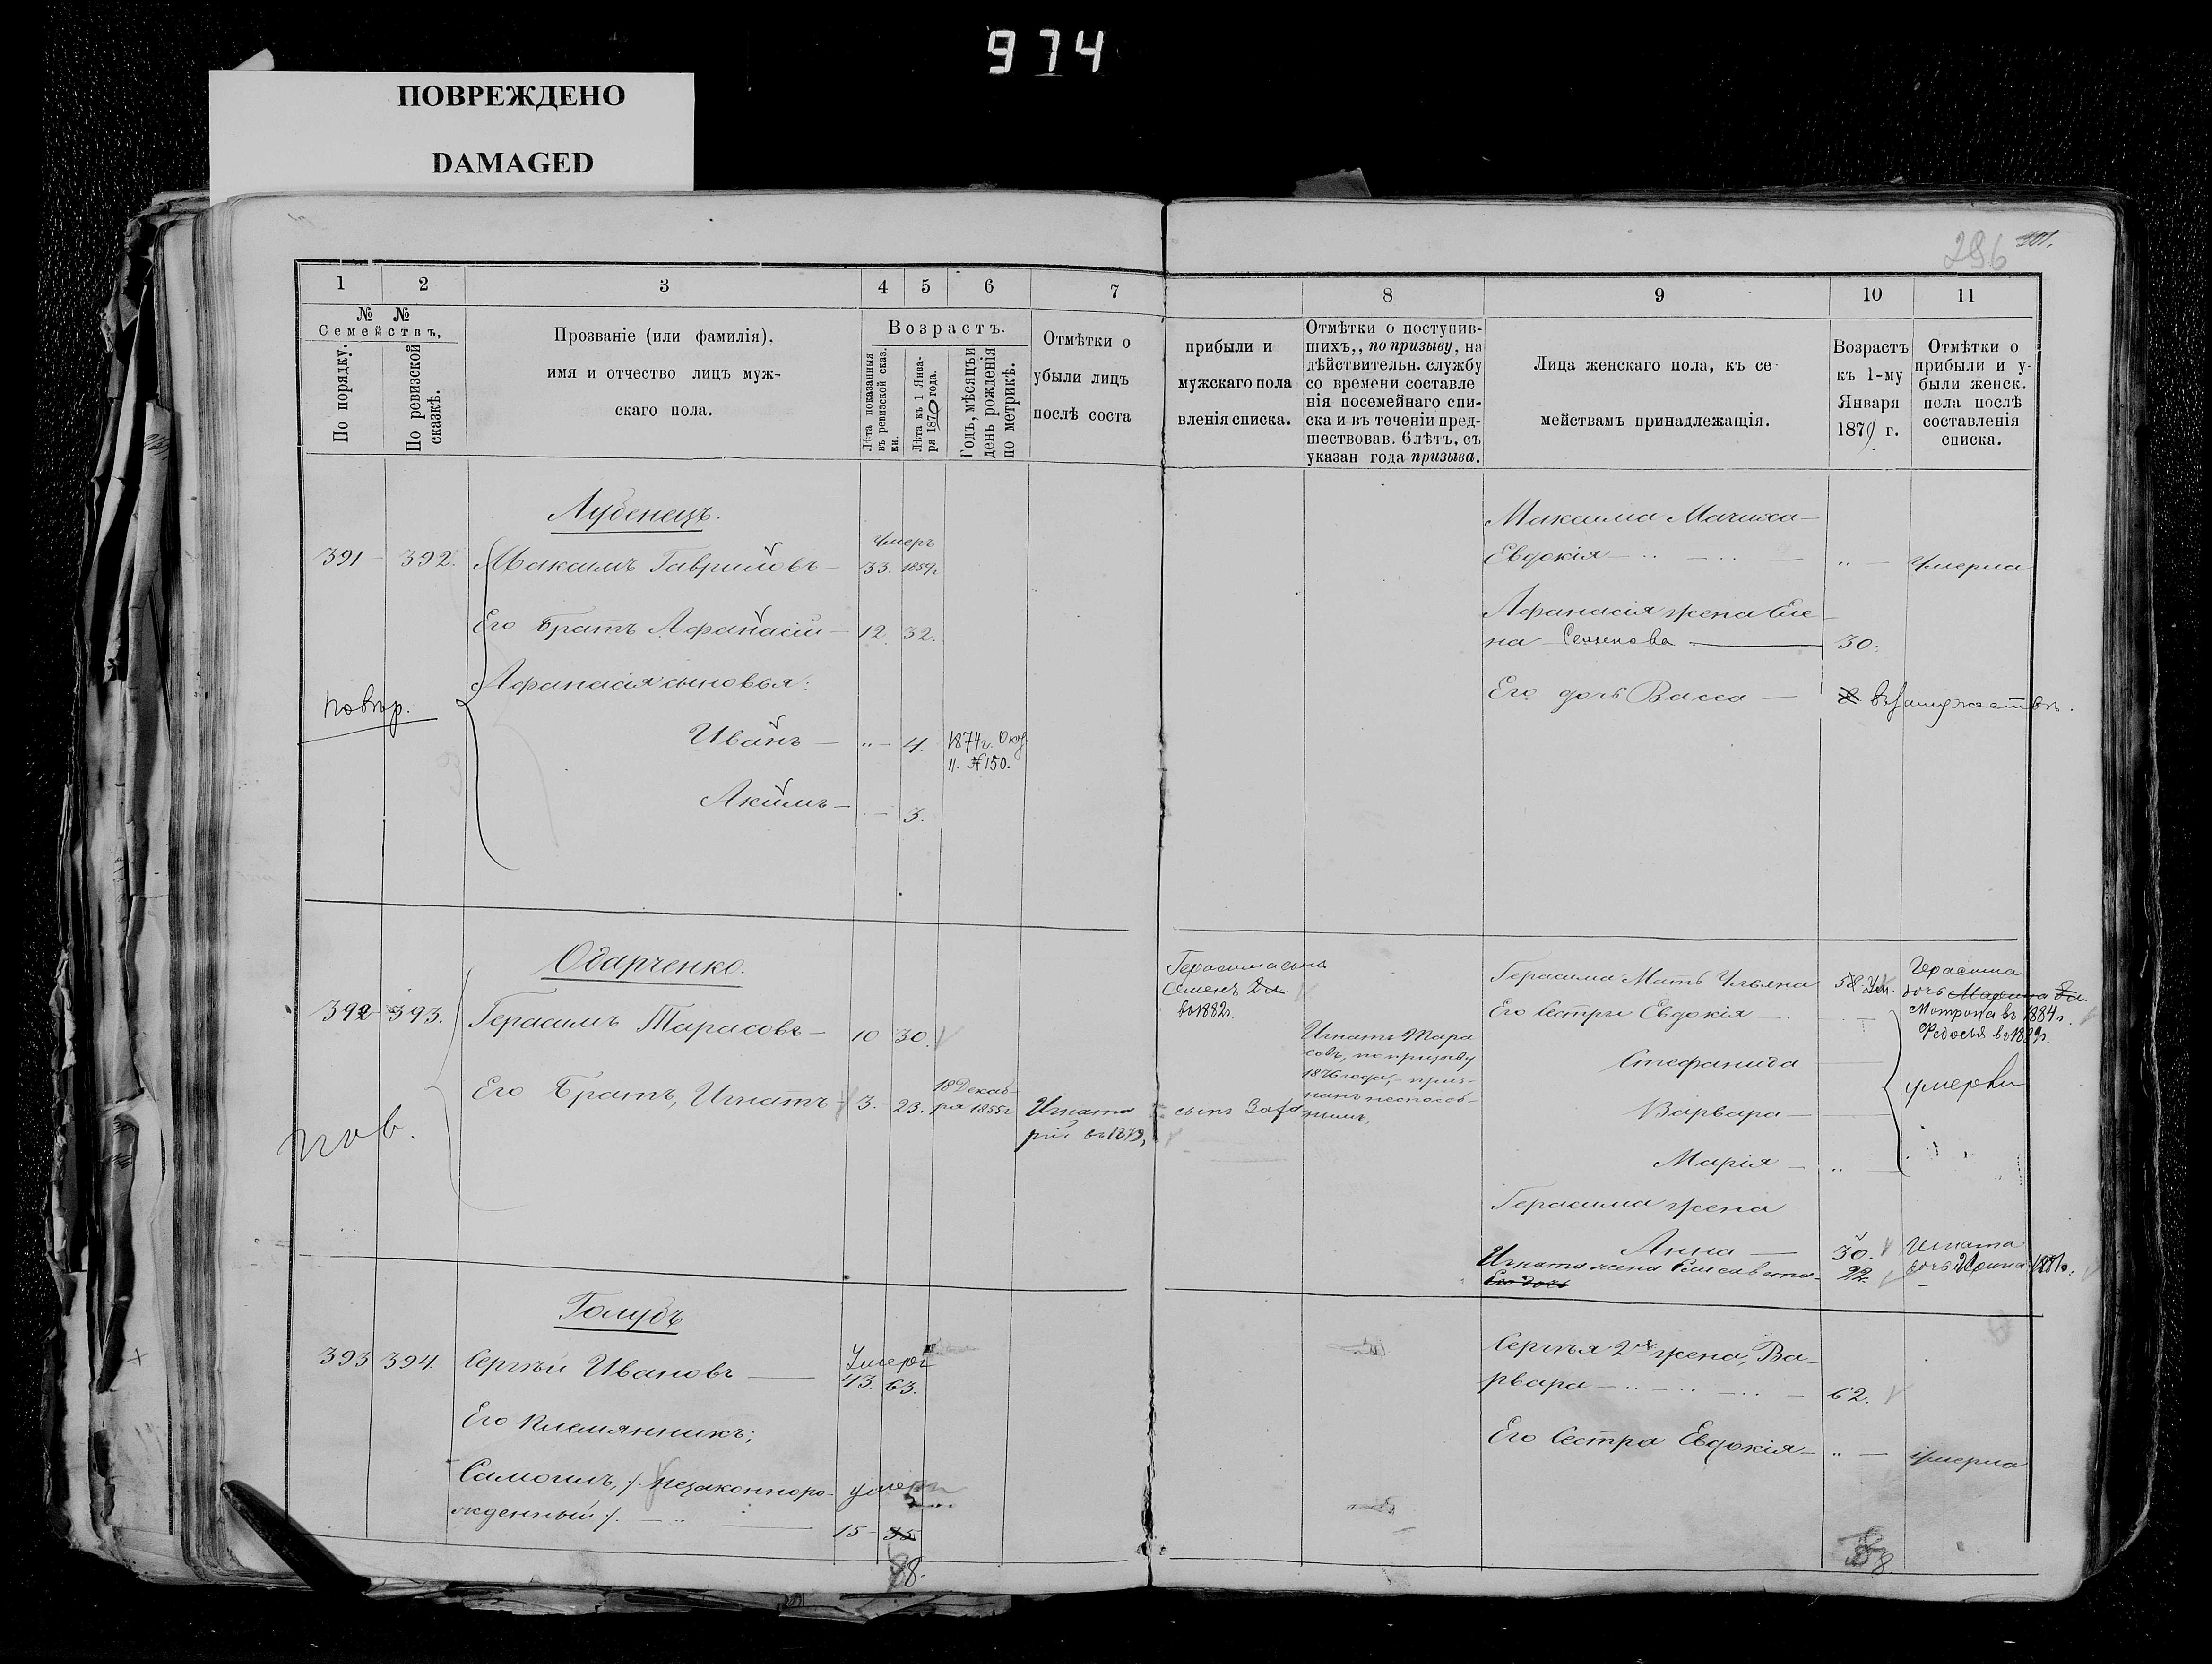 974
ПОВРЕЖДЕНО
DAMAGED
296 301.
1 2 3 4 5 6 7 8 9 10 11
№ №
Семействъ,
По порядку.
По ревизской сказкѣ.
Прозваніе (или фамилія),
имя и отчество лицъ муж-
скаго пола.
Возрастъ.
Лѣта показанныя въ ревизской сказки.
Лѣта къ 1 Января 1879 года.
Годъ, мѣсяцъ и день рожденія по метрикѣ.
Отмѣтки о
убыли лицъ
послѣ соста
прибыли и
мужскаго пола
вленія списка.
Отмѣтки о поступив-
шихъ,, по призыву, на
дѣйствительн. службу
со времени составле
нія посемейнаго спи-
ска и въ теченіи пред-
шествовав. 6 лѣтъ, съ
указан года призыва.
Лица женскаго пола, къ се-
мействамъ принадлежащія.
Возрастъ
къ 1-му
Января
1879 г.
Отмѣтки о
прибыли и у-
были женск.
пола послѣ
составленія
списка.
Лубенецъ.
391 - 392. Максимъ Гавриловъ - 33. Умеръ 1859г
Его Братъ Афанасій - 12. 32.
Афанасія сыновья:
повѣр.
Иванъ - „ - 4. 1874г. Окт.
11. №150.
Акимъ - - 3.
Максима Мачиха -
Евдокія - „ - Умерла
Афанасія жена Еле-
на Семенова 30.
Его дочь Васса - въ замужествѣ.
Одарченко.
392 393. Герасимъ Тарасовъ - 10 30.
Его Братъ, Игнатъ - 3. - 23. 18 Декаб-
ря 1855г
пов.
Игната сынъ
рій въ 1879,
Герасима сынъ
Семенъ
въ 1882г.
Игнатъ Тара
совъ, по призыву
1876 года, - приз-
нанъ неспособ-
нымъ,
Герасима Мать Ульяна 58. Ум.
Его Сестры Евдокія -
Стефанида
Варвара -
Марія - „
умерли
Герасима
дочь Марина
Мотрона въ 1884г.
Федосья
Герасима жена
Анна - 30.
Игната жена Елисавета - 22.
Его дочь
Игната
дочь Ирина 1881г.
Голубъ
393 394. Сергѣй Ивановъ Умеръ
43. 63.
Его племянникъ;
Самоилъ, /. незаконноро- умеръ
жденный /. - „ 15 - 35
Сергѣя 2я жена, Ва-
рвара - „ - 62.
Его Сестра Евдокія - „ - умерла
88.